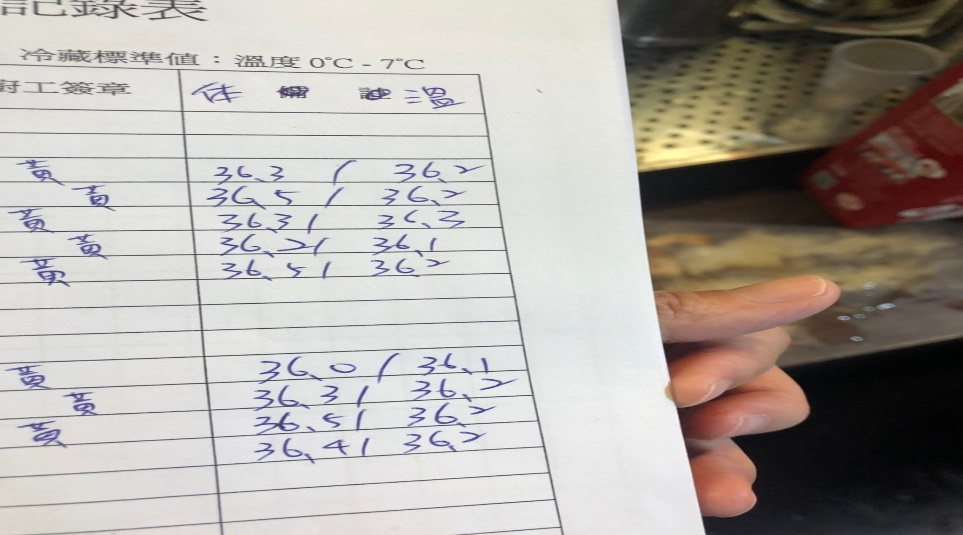 記錄表
冷藏標準值：溫度 0°C - 7°C
廚工簽章 体溫
黃 36.3 / 36.2
黃 36.5 / 36.2
黃 36.3 / 36.3
黃 36.2 / 36.1
黃 36.5 / 36.2
黃 36.0 / 36.1
黃 36.3 / 36.2
黃 36.5 / 36.2
36.4 / 36.2